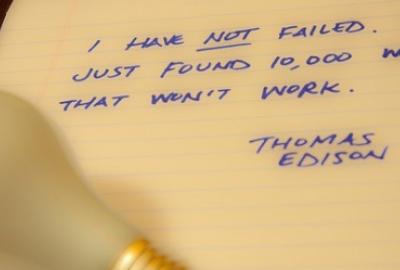 I HAVE NOT FAILED.
JUST FOUND 10,000
THAT WON'T WORK.
THOMAS
EDISON